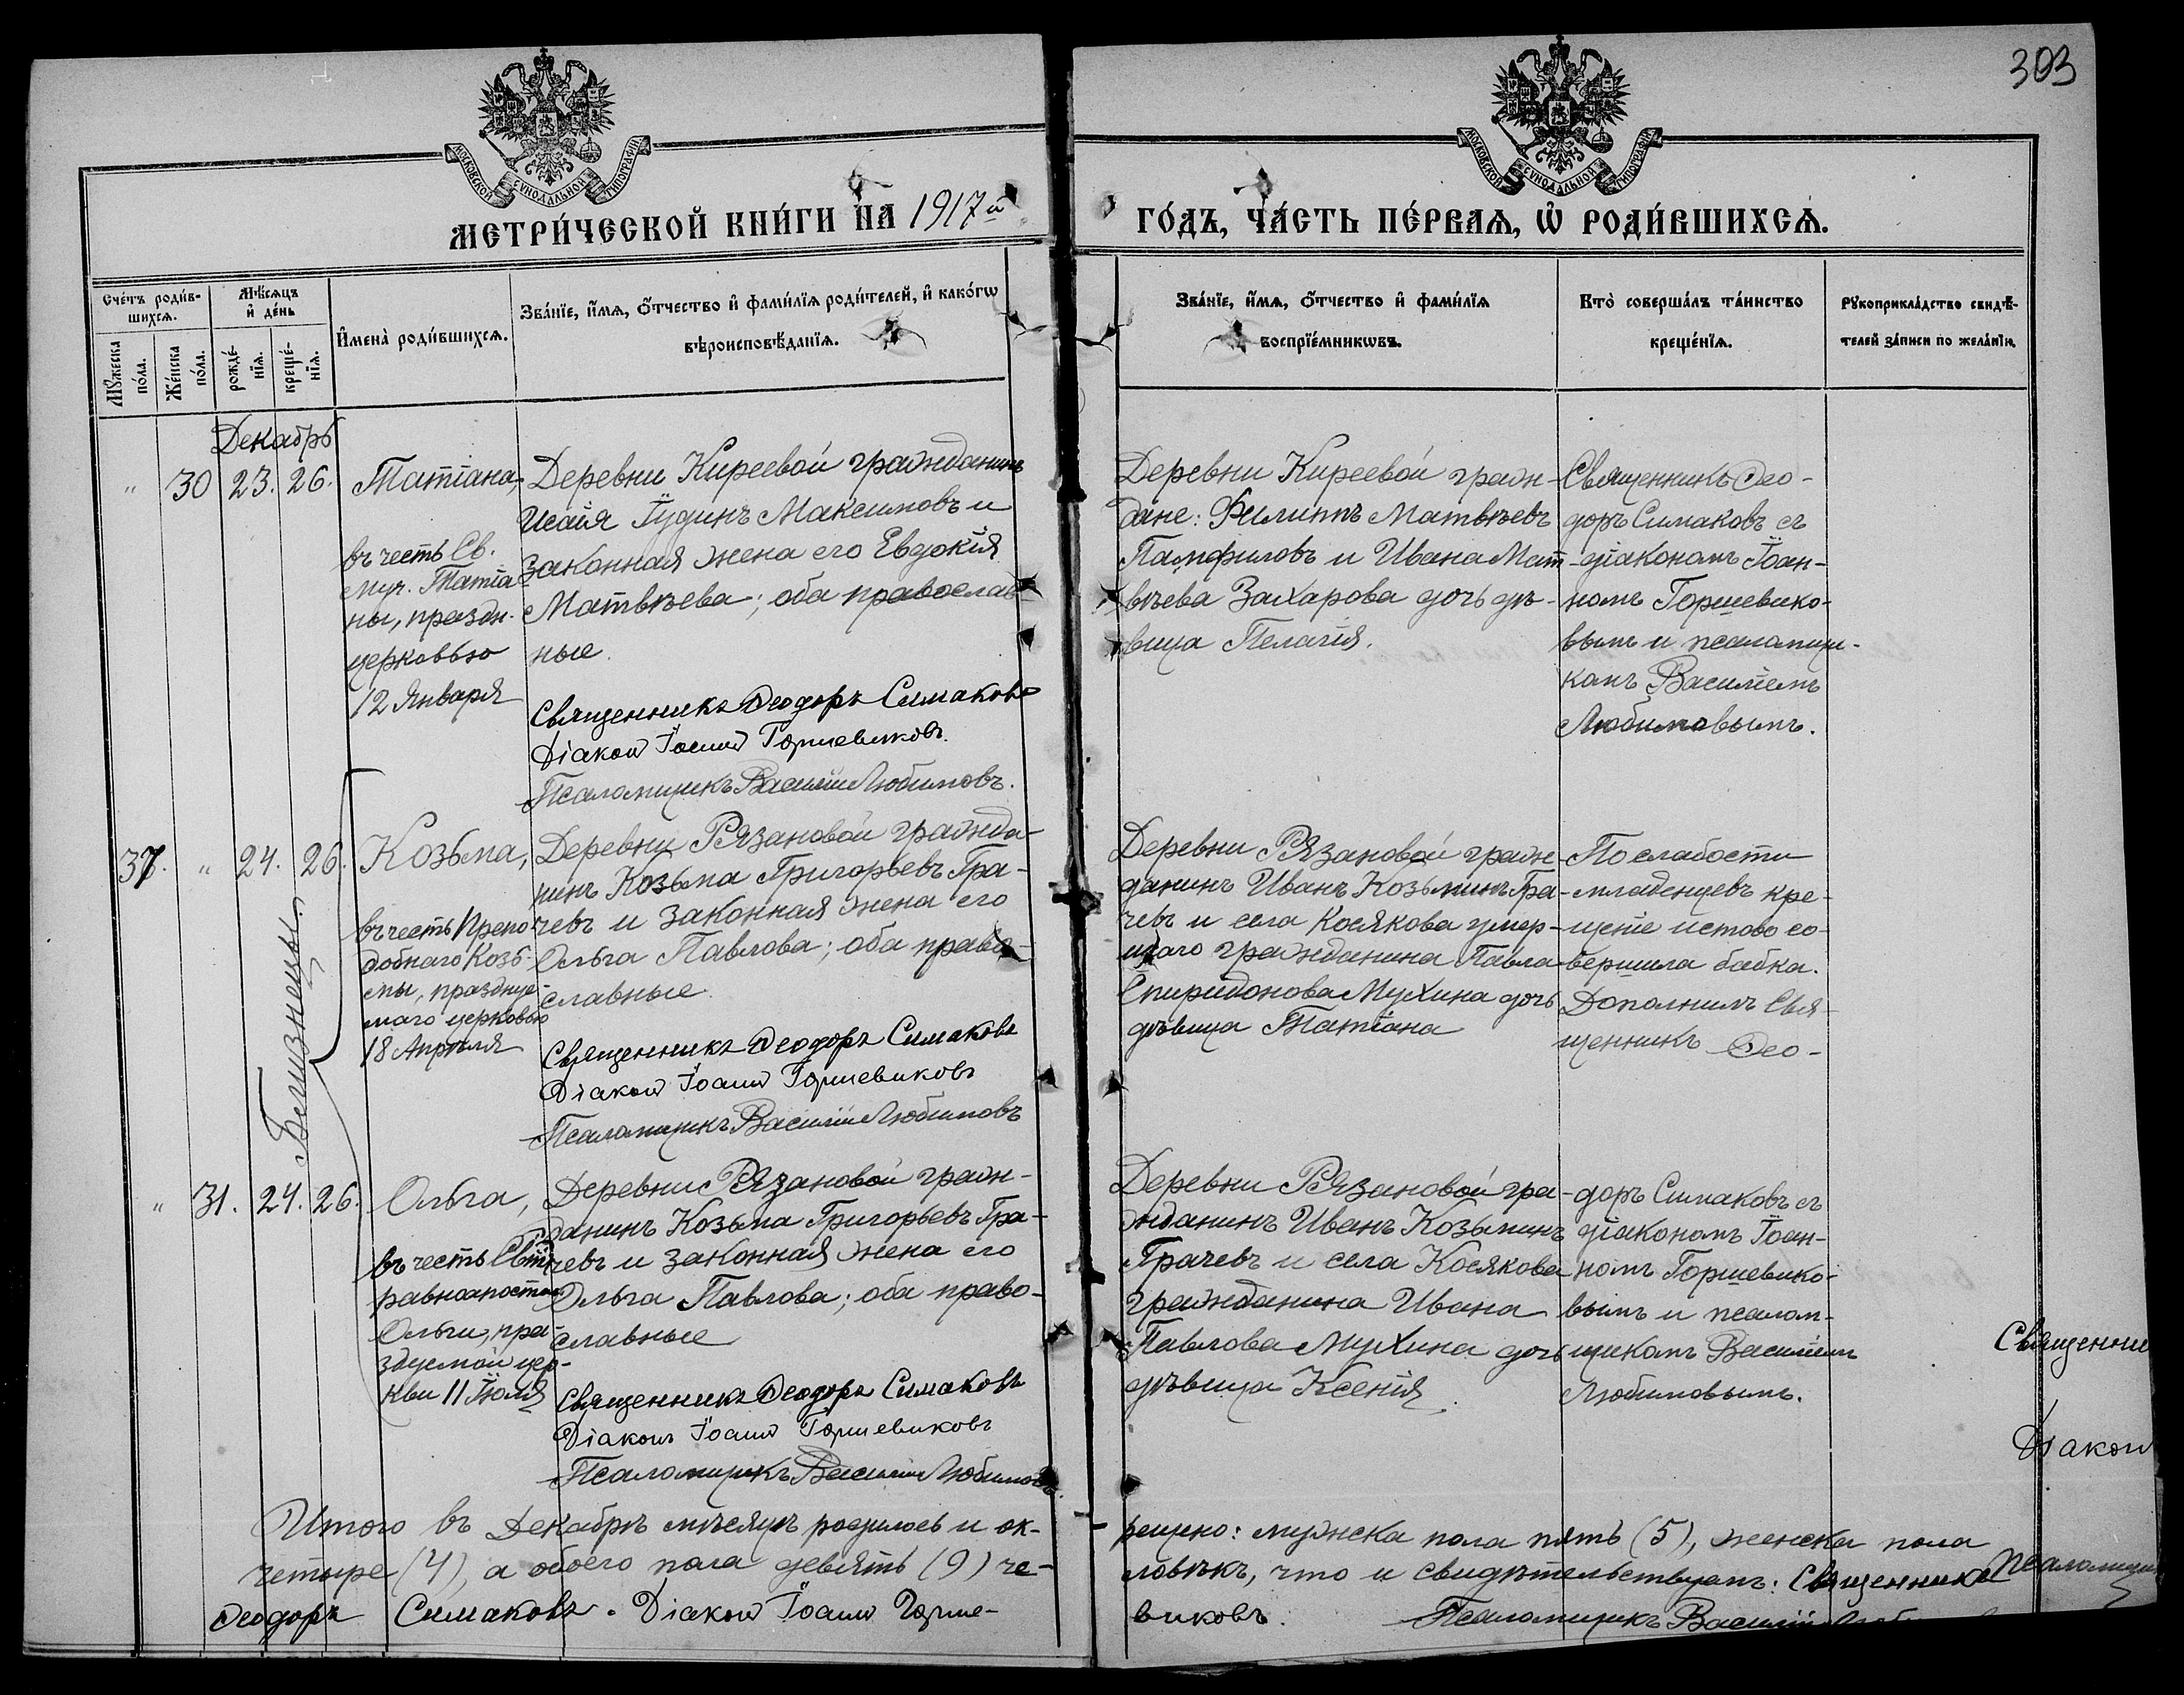 303
МОСКОВСКОЙ СУНОДАЛЬНОЙ ТИПОГРАФІИ
МОСКОВСКОЙ СУНОДАЛЬНОЙ ТИПОГРАФІИ
МЕТРИ́ЧЕСКОЙ КНИ́ГИ НА 1917й
ГО́ДЪ, ЧА́СТЬ ПЕ́РВАѦ, Ѽ РОДИ́ВШИХСѦ.
Сче́тъ роди́в-
шихсѧ.
Мꙋ́жеска по́ла.
Же́нска по́ла.
Мѣ́сѧцъ и҆ де́нь
рожде́-
нїѧ.
креще́-
нїѧ.
И҆мена̀ роди́вшихсѧ.
Зва́нїе, и҆́мѧ, ѻ҆́тчество и҆ фами́лїѧ роди́телей, и҆ како́гѡ
вѣроисповѣ́данїѧ.
Зва́нїе, и҆́мѧ, ѻ҆́тчество и҆ фами́лїѧ
воспрїе́мникѡвъ.
Кто̀ соверша́лъ та́инство
креще́нїѧ.
Рꙋкоприкла́дство свидѣ́-
телей за́писи по жела́нїю.
Декабрь
" 30 23. 26.
Татіана,
въ честь Св.
муч. Татіа
ны, праздн.
церковью
12 Января
Деревни Киреевой гражданинъ
Исаія Іудинъ Максимовъ и
законная жена его Евдокія
Матвѣева; оба православ
ные.
Священникъ Ѳеодоръ Симаковъ
Діаконъ Іоаннъ Горшевиковъ.
Псаломщикъ Василій Любимовъ.
Деревни Киреевой граж-
дане: Филиппъ Матвѣевъ
Памфиловъ и Ивана Мат-
вѣева Захарова дочь дѣ-
вица Пелагія.
Священникъ Ѳео-
доръ Симаковъ съ
діакономъ Іоан-
номъ Горшевико-
вымъ и псаломщи-
комъ Василіемъ
Любимовымъ.
37. " 24. 26.
Близнецы.
Козьма,
въ честь Препо
добнаго Козь-
мы, празднуе-
маго церковью
18 Апрѣля
Деревни Рязановой гражда-
нинъ Козьма Григорьевъ Гра-
чевъ и законная жена его
Ольга Павлова; оба право-
славные.
Священникъ Ѳеодоръ Симаковъ
Діаконъ Іоаннъ Горшевиковъ
Псаломщикъ Василій Любимовъ
Деревни Рязановой граж-
данинъ Иванъ Козьминъ Гра-
чевъ и села Косякова умер-
шаго гражданина Павла
Спиридонова Мухина дочь
дѣвица Татіана
По слабости
младенцевъ кре-
щеніе истово со-
вершила бабка.
Дополнилъ Свя-
щенникъ Ѳео-
" 31. 24. 26.
Ольга,
въ честь Свят.
равноапостол.
Ольги, пра-
здуемой цер-
кви 11 Іюля
Деревни Рязановой граж-
данинъ Козьма Григорьевъ Гра-
чевъ и законная жена его
Ольга Павлова; оба право-
славные
Священникъ Ѳеодоръ Симаковъ
Діаконъ Іоаннъ Горшевиковъ
Псаломщикъ Василій Любимовъ.
Деревни Рязановой гра-
жданинъ Иванъ Козьминъ
Грачевъ и села Косякова
гражданина Ивана
Павлова Мухина дочь
дѣвица Ксенія.
доръ Симаковъ съ
діакономъ Іоан-
номъ Горшевико-
вымъ и псалом-
щикомъ Василіемъ
Любимовымъ.
Священни
Діакон
Псаломщи
Итого въ Декабрѣ мѣсяцѣ родилось и ок-
рещено: мужска пола пять (5), женска пола
четыре (4), а обоего пола девять (9) че-
ловѣкъ, что и свидѣтельствуемъ: Священникъ
Ѳеодоръ Симаковъ. Діаконъ Іоаннъ Горше-
виковъ. Псаломщикъ Василій